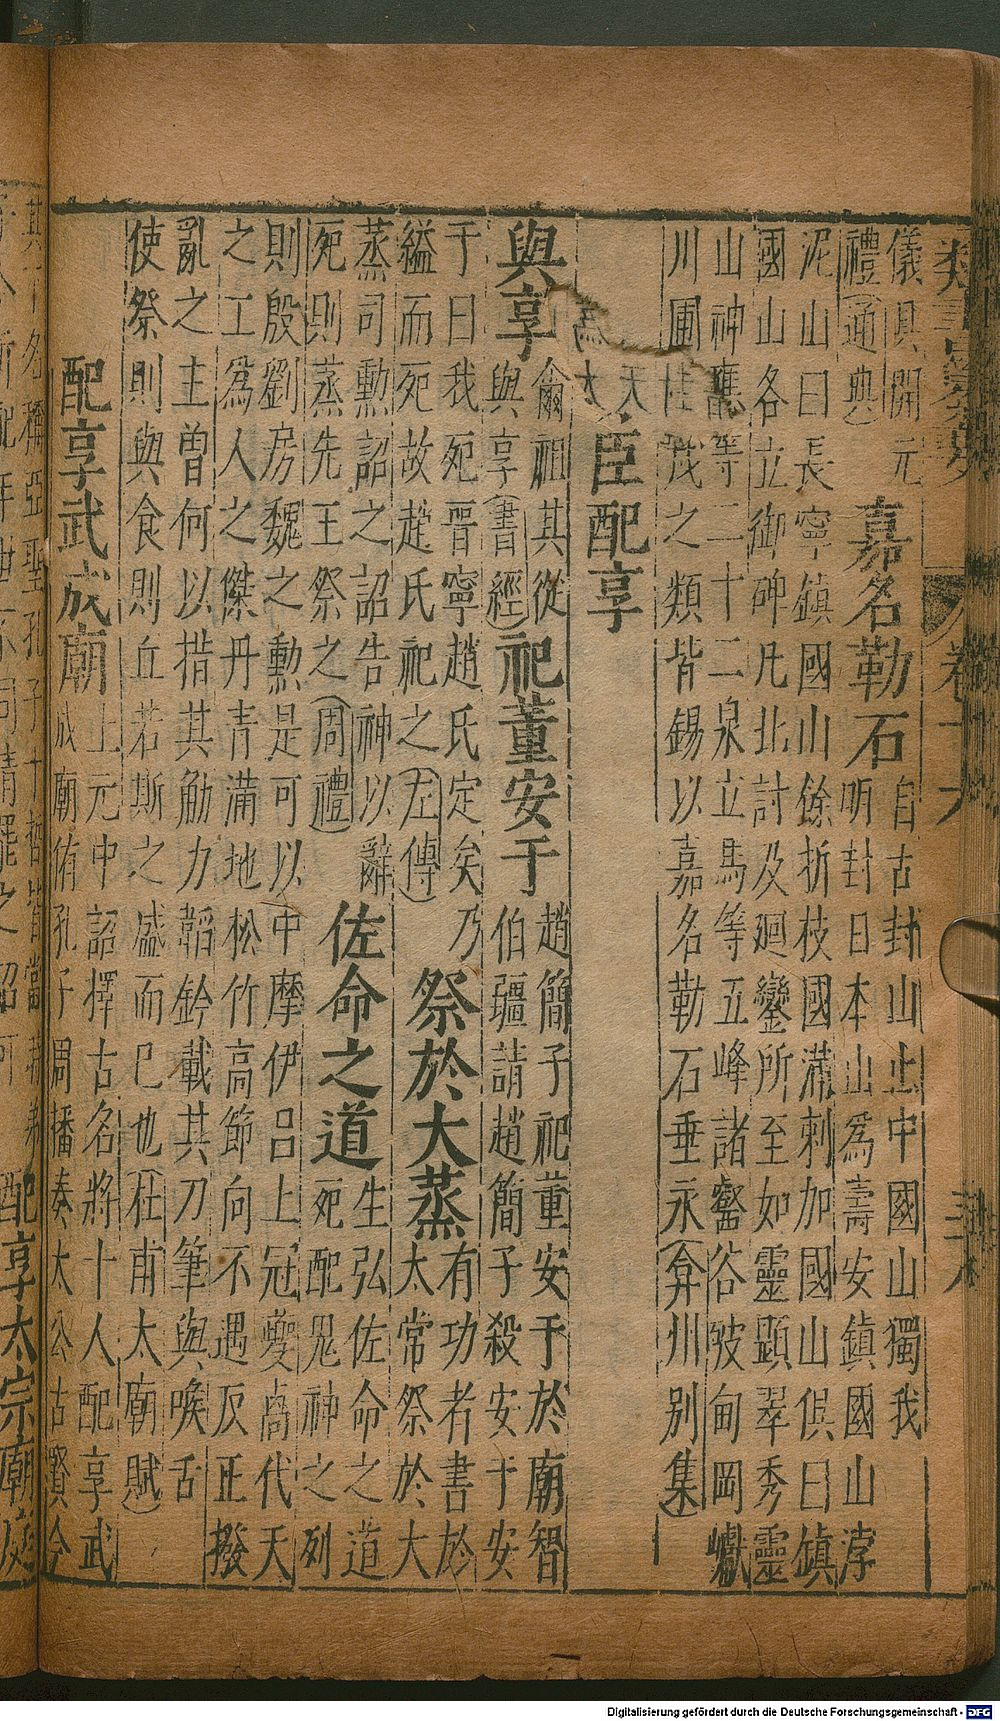 類書纂要 卷十九
儀俱開元
禮(通典)
嘉名勒石
自古封山止中國山獨我
明封日本山爲壽安鎮國山浡
泥山曰長寧鎮國山餘折枝國滿剌加國山俱曰鎮
國山各立御碑凡北討及廻鑾所至如靈顯翠秀靈
山神應等二十二泉立馬等五峰諸壑谷陂甸岡巘
川圃佳茂之類皆錫以嘉名勒石垂永(弇州別集)
天
爲大
臣配享
與享
祖其從
與享(書經)
祀董安于
趙簡子祀董安于於廟智
伯疆請趙簡子殺安于安
于曰我死晉寧趙氏定矣乃
縊而死故趙氏祀之(左傳)
祭於大蒸
有功者書於
太常祭於大
蒸司勳詔之詔告神以辭
死則蒸先王祭之(周禮)
佐命之道
生弘佐命之道
死配鬼神之列
則殷劉房魏之勳是可以中摩伊呂上冠夔卨代天
之工爲人之傑丹青滿地松竹高節向不遇反正撥
亂之主曾何以措其觔力韜鈐載其刀筆與喉舌
使祭則與食則丘若斯之盛而已也(杜甫太廟賦)
配享武成廟
上元中詔擇古名將十人配享武
成廟侑孔子周播奏太公古賢今
其下名稱亞聖孔子十哲皆當
配享太宗廟庭
Digitalisierung gefördert durch die Deutsche Forschungsgemeinschaft - DFG